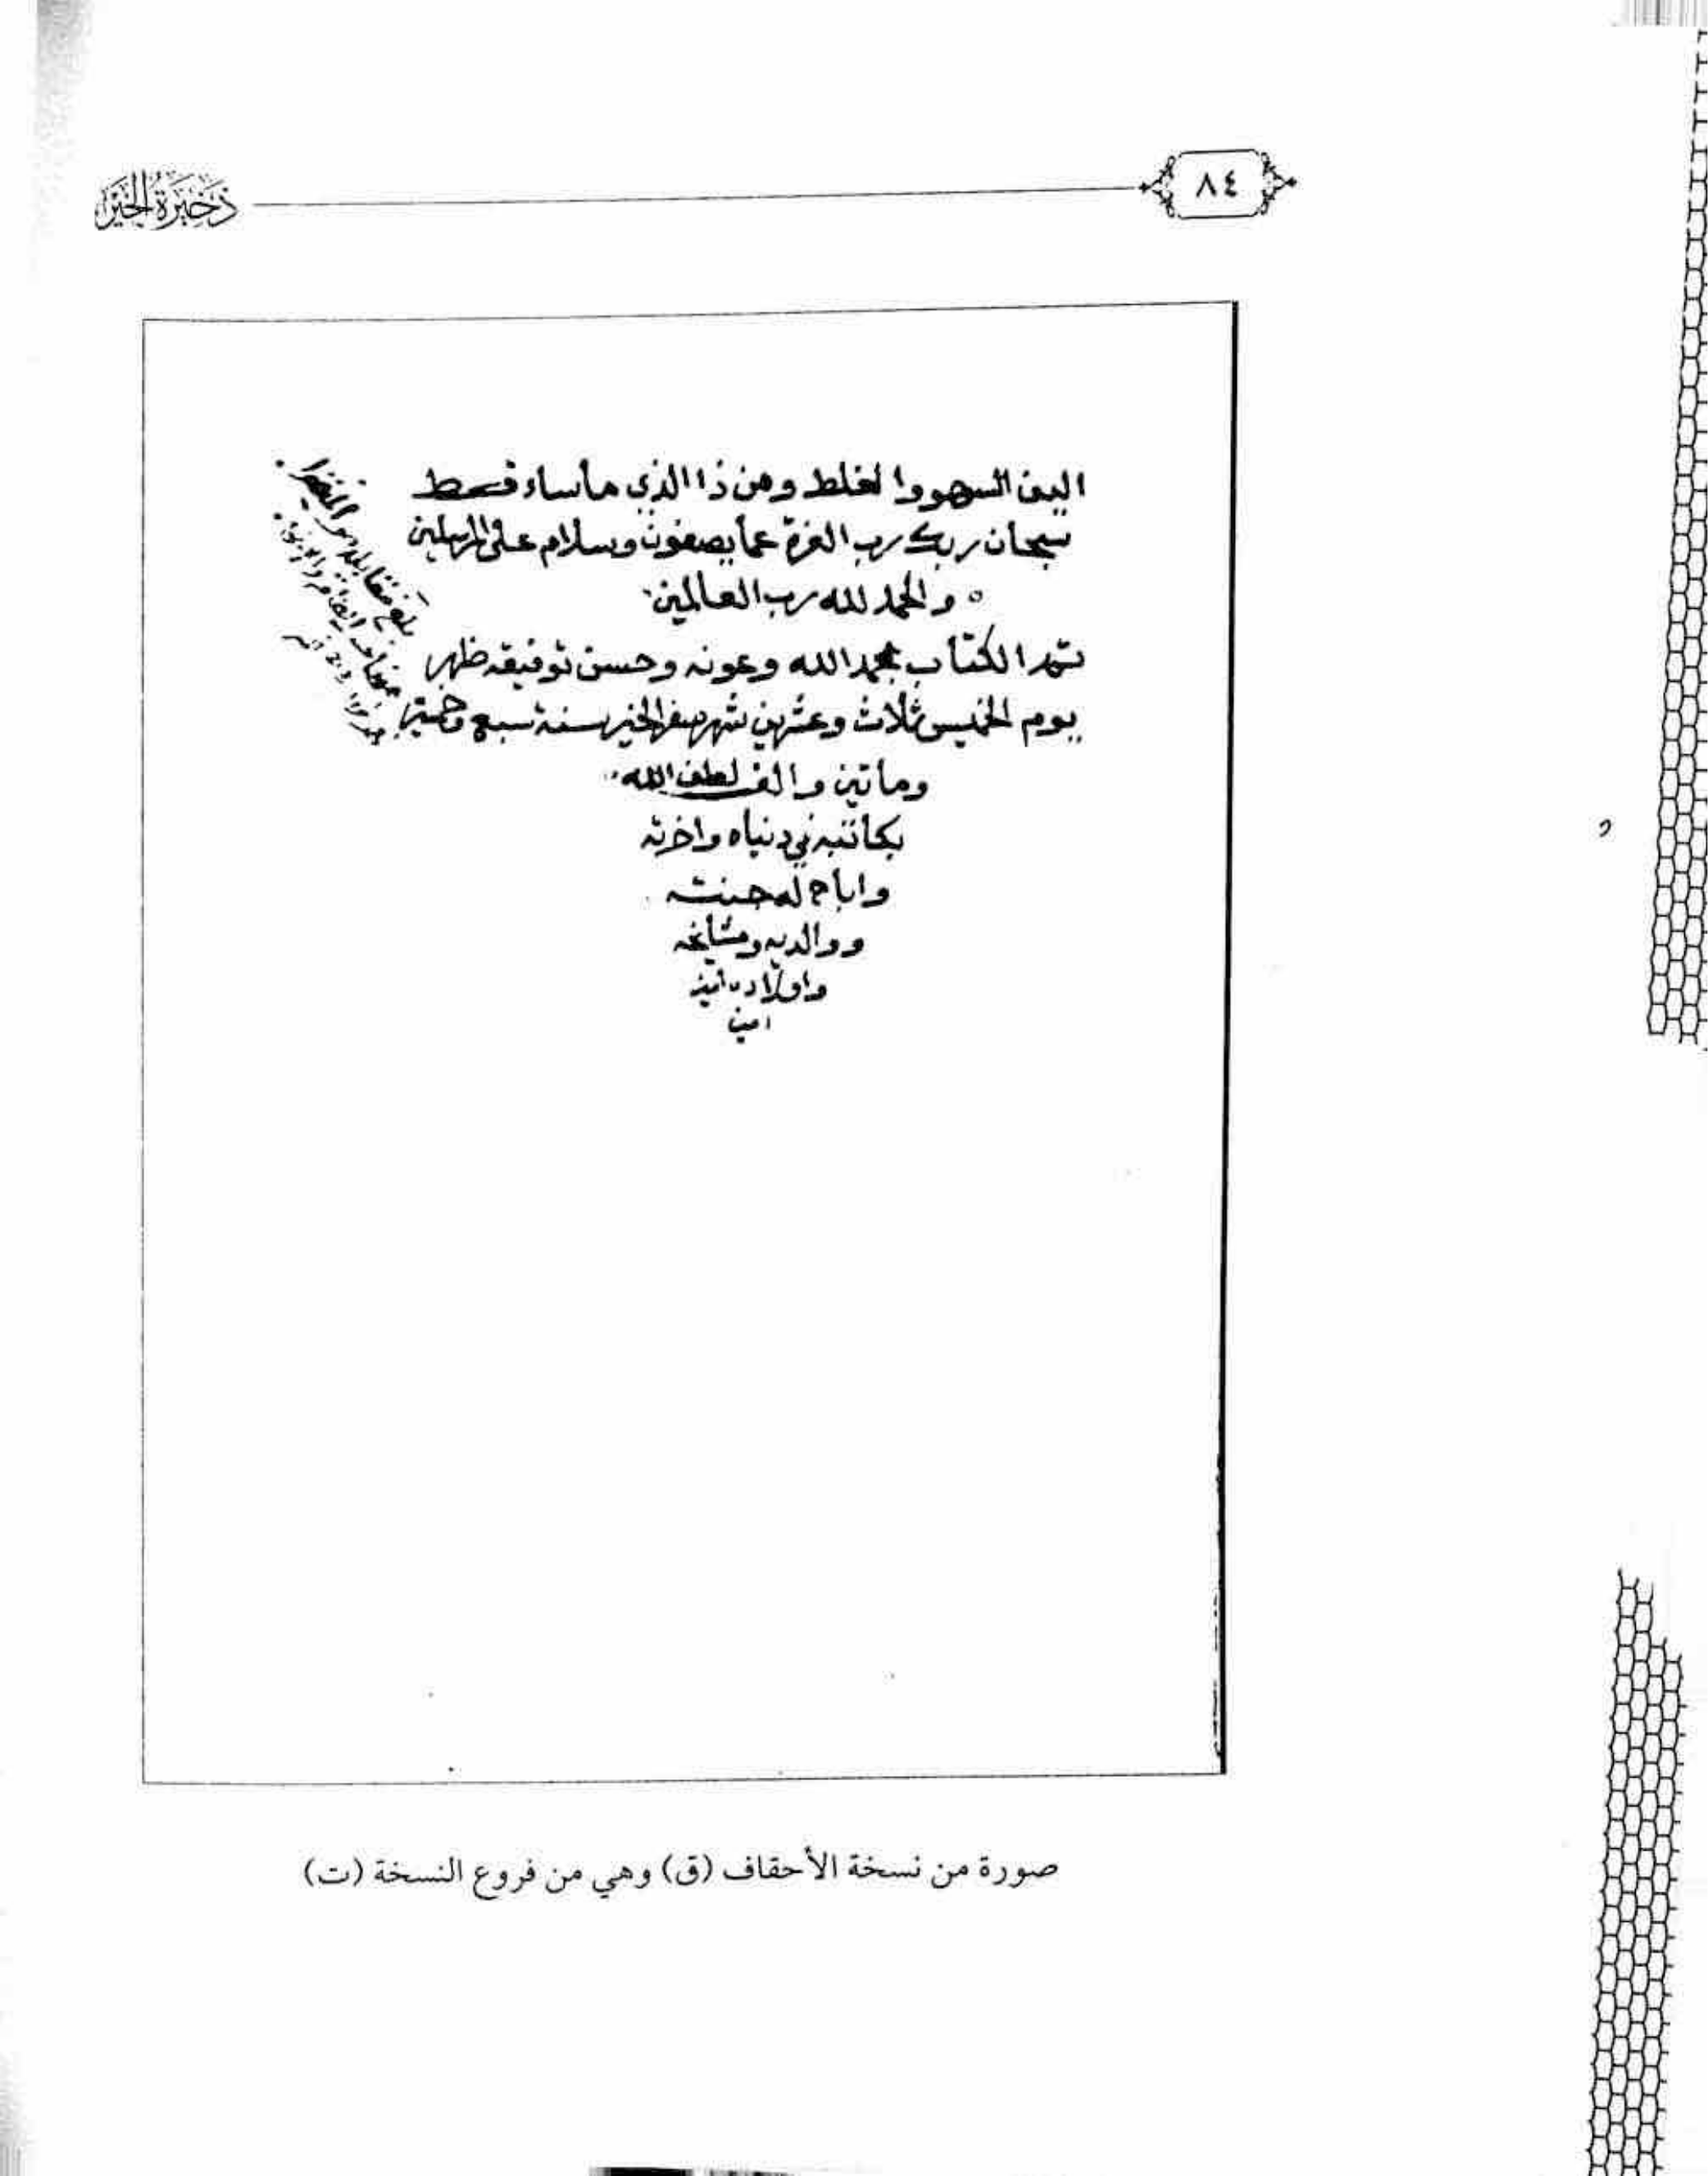 ٨٤
ذخيرة الخير
البين السهو والغلط ومن ذا الذي ما ساء قط
سبحان ربك رب العزة عما يصفون وسلام على المرسلين
والحمد لله رب العالمين
تم الكتاب بحمد الله وعونه وحسن توفيقه ظهر
يوم الخميس ثلاث وعشرين شهر صفر الخير سنة سبع وخمسين
وماتين والف لطف الله
بكاتبه في دنياه واخرته
واباح له جنته
ووالديه ومشايخه
واولاده امين
امين
بلغ مقابلة
صورة من نسخة الأحقاف (ق) وهي من فروع النسخة (ت)